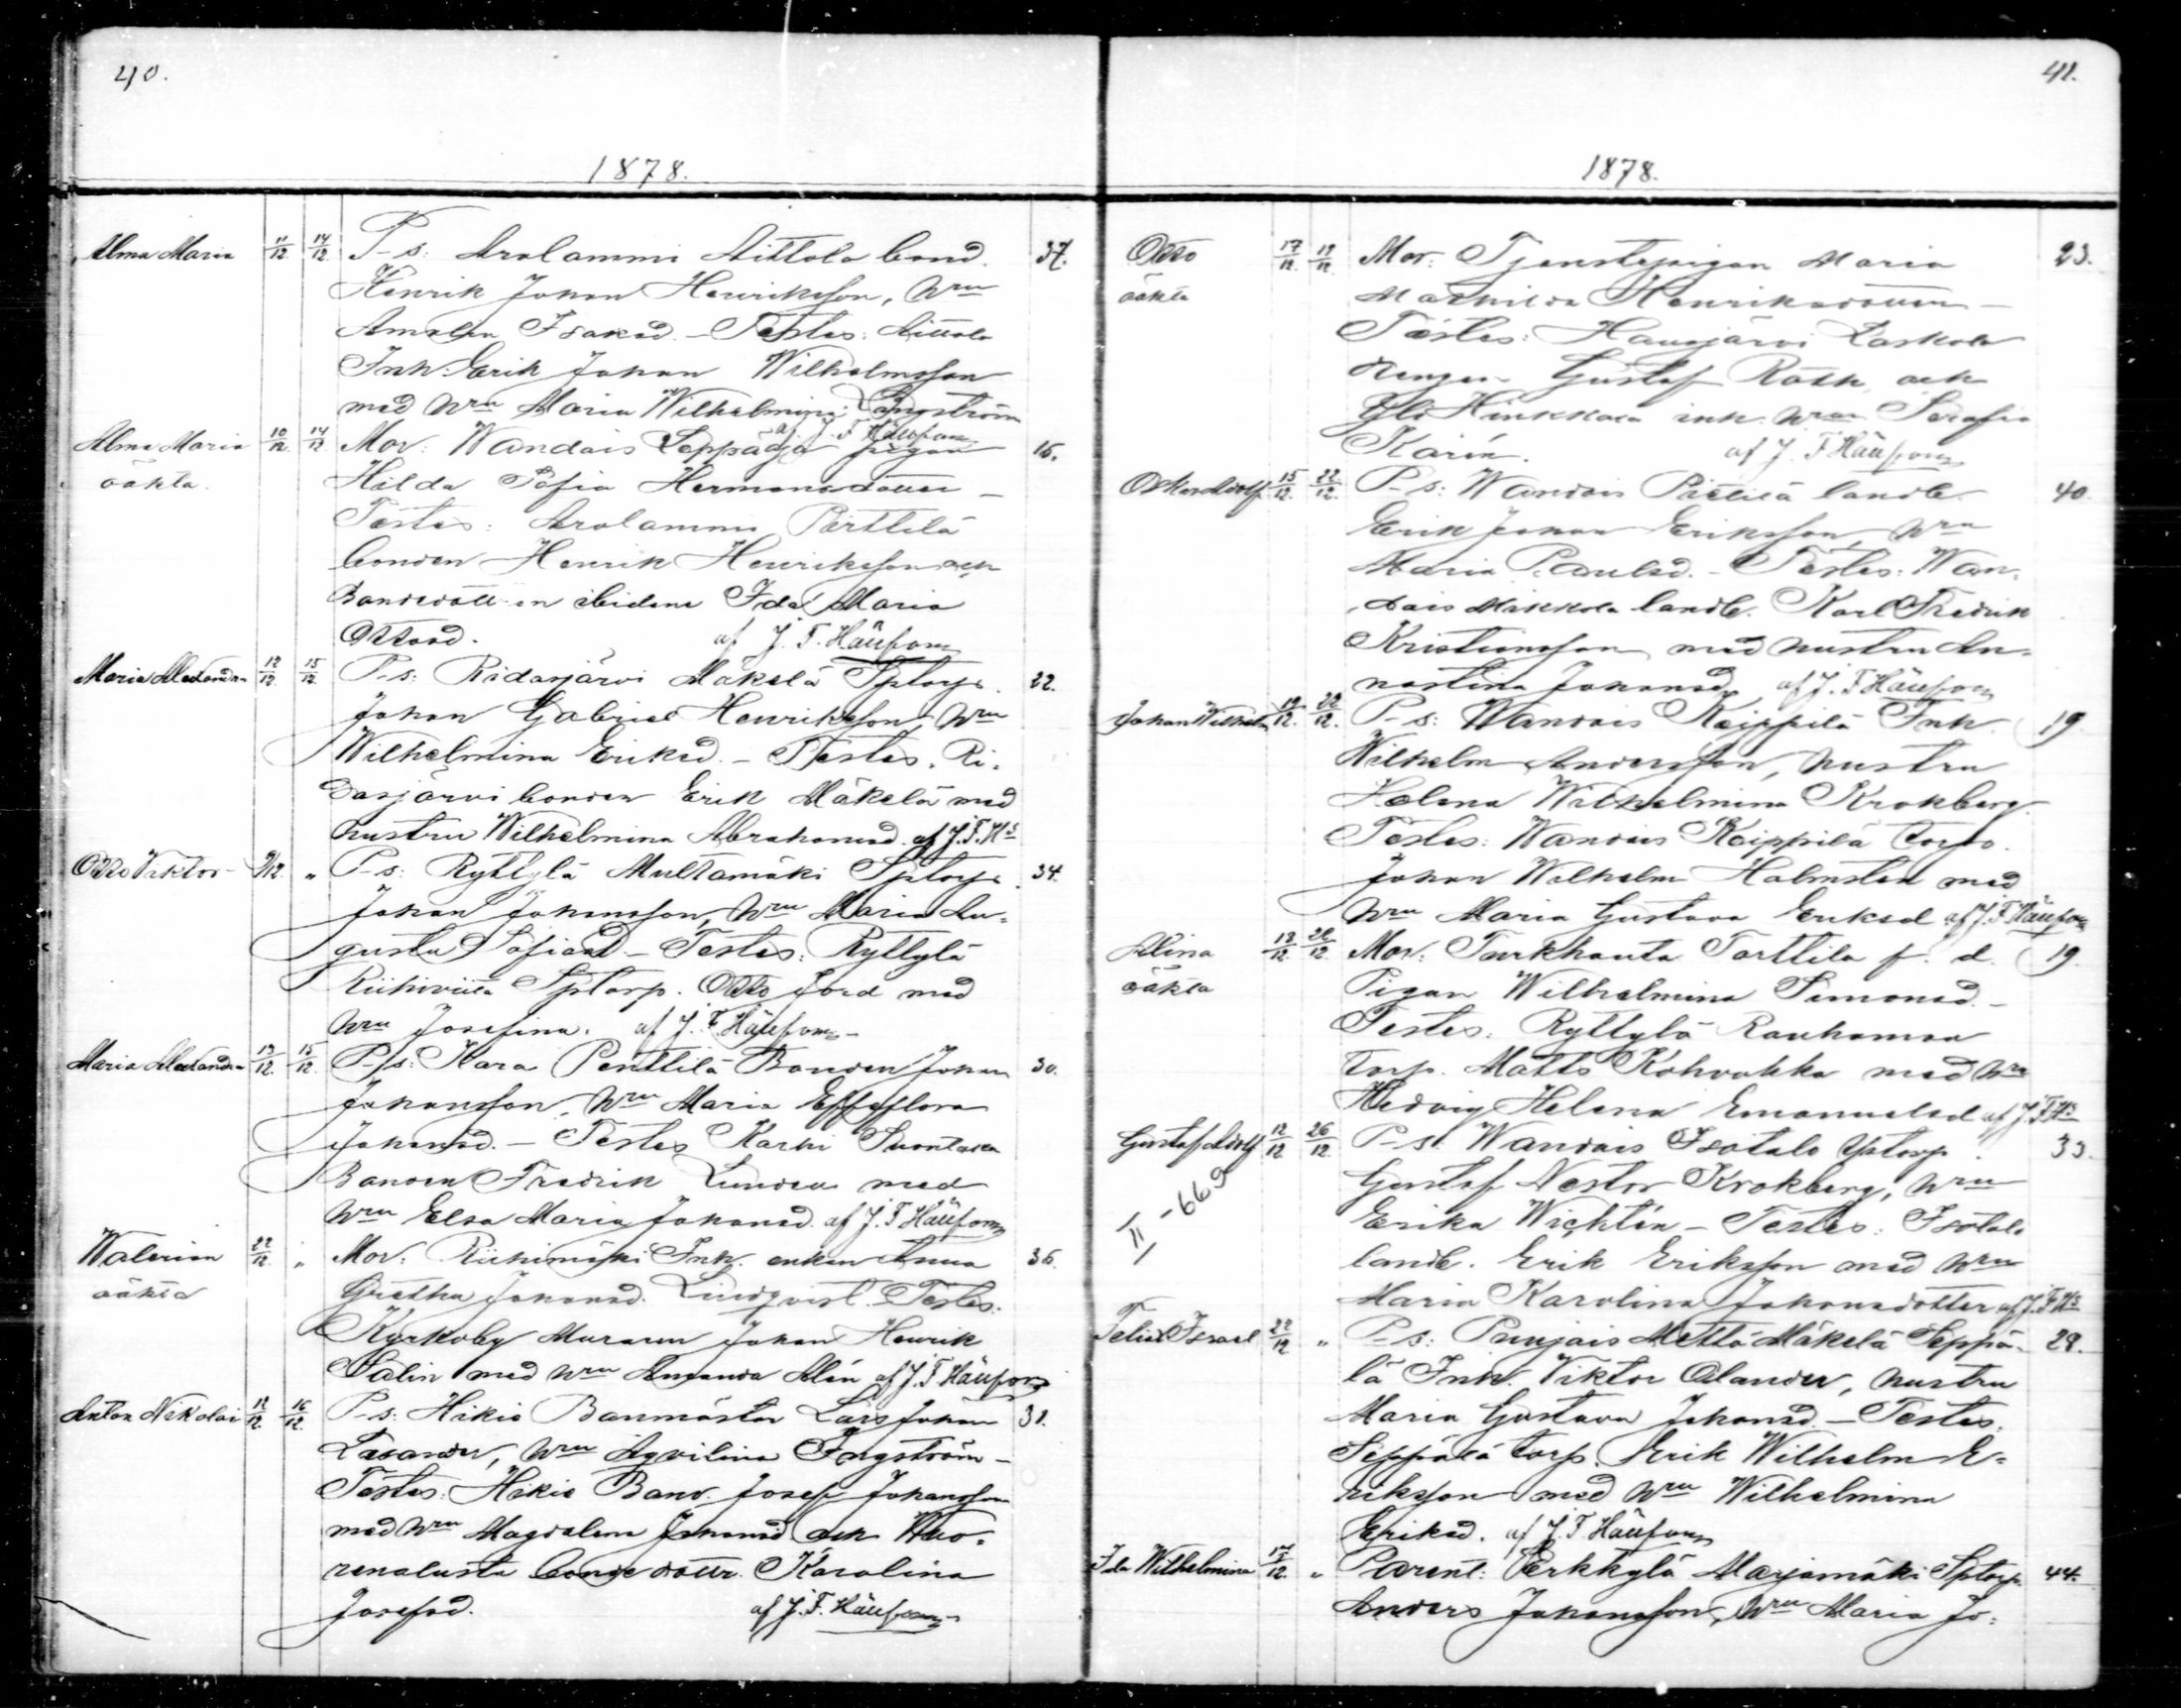 40.
1878.
Alma Maria 11/12. 14/12. P-s: Arolammi Aittola bond. 37.
Henrik Johan Henriksson, hru
Amalia Isaksd. - Testes: Aittola
Inh. Erik Johan Wilhelmsson
med hru Maria Wilhelmina Långström
af J. F. Häusfom
Alma Maria 10/12. 14/12 Mor: Wandais Seppä pigan 16.
oäkta. Hilda Sofia Hermansdotter -
Testes: Arolammi Perttilä
bonden Henrik Henriksson och
Bondedott-en ibidem Ida Maria
Ottosd. af J. F. Häusfom
Maria Alexandra 12/12. 15/12. P-s: Ridasjärvi Mäkelä Sptorp. 22.
Johan Gabriel Henriksson, hru
Wilhelmina Eriksd. - Testes. Ri-
dasjärvi bonden Erik Mäkelä med
hustru Wilhelmina Abrahamsd. af J. F. Hs
Otto Viktor 9/12. " P-s: Ryttylä Multamäki Sptorp. 34.
Johan Johansson, hru Maria Au-
gusta Sofiad - Testes: Ryttylä
Sptorp. Otto Ford med
hru Josefina. af J. F. Häusfom -
Maria Alexandra 13/12. 15/12. P-s: Kara Penttilä Bonden Johan 30.
Johansson, hru Maria
Johansd. - Testes Karhi
Bonden Fredrik Lunden med
hru Elsa Maria Johansd. af J. F. Häusfom
Walerian 22/12. " Mor: Riihimäki Inh. enkan Anna 36.
oäkta Gretha Johansd. Lindqvist. Testes.
Kyrkoby Muraren Johan Henrik
Salin med hru Amanda Alén af J. F. Häusfom
Anton Nikolai 12/12. 16/12. P-s: Hikiä Banmästar Lars Johan 31.
Lasander, hru Aqvilina Engström -
Testes: Hikiä Banv. Josef Johansson
med hru Magdalena Johansd. och
bondedottr. Karolina
Josefsd. af J. F. Häusfom
41.
1878.
Otto 17/12. 19/12 Mor: Tjenstepigan Maria 23.
oäkta Mathilda Henriksdotter -
Testes: Hausjärvi Laskola
drengen Gustaf Rask och
inh. hru Serafia
Karin. af J. F. Häusfom
Oskar Adolf 15/12. 22/12. P-s: Wandais landb. 40.
Erik Johan Eriksson, hru
Maria Paulsd. - Testes: Wan-
dais Mikkola landb. Karl Fredrik
Kristiansson med hustru An-
nastina Johansd. af J. F. Häusfom
Johan Wilhelm 19/12. 22/12. P-s: Wandais Keippilä Inh. 19
Wilhelm Andersson, hustru
Helena Wilhelmina Krokberg.
Testes: Wandais Keippilä torp.
Johan Wilhelm Holmsten med
hru Maria Gustava Eriksd af J. F. Häusfom
Alina 18/12 22/12 Mor: Turkhauta Torttila f. d. 19.
oäkta Pigan Wilhelmina Simonsd. -
Testes. Ryttylä Rauhamaa
torp. Matts Kohvakka med hru
Hedvig Helena Emanuelsd af J. F. Hs
Gustaf Adolf 12/12 26/12. P-s: Wandais Isotalo Sptorp. 33.
II - 669
Gustaf Nestor Krokberg, hru
Erika Wichtén - Testes: Isotalo
landb. Erik Eriksson med hru
Maria Karolina Johansdotter af J. F. Hs
Felix Israel 22/12 " P-s: Punjais Mettä Mäkelä Seppä- 29.
lä Inh. Viktor Olander, hustru
Maria Gustava Johansd. - Testes.
Seppälä torp. Erik Wilhelm E-
riksson med hru Wilhelmina
Eriksd. af J. F. Häusfom
Ida Wilhelmina 17/12. " Parent: Erkkylä Marjamäki Sptorp. 44.
Anders Johansson, hru Maria Jo-